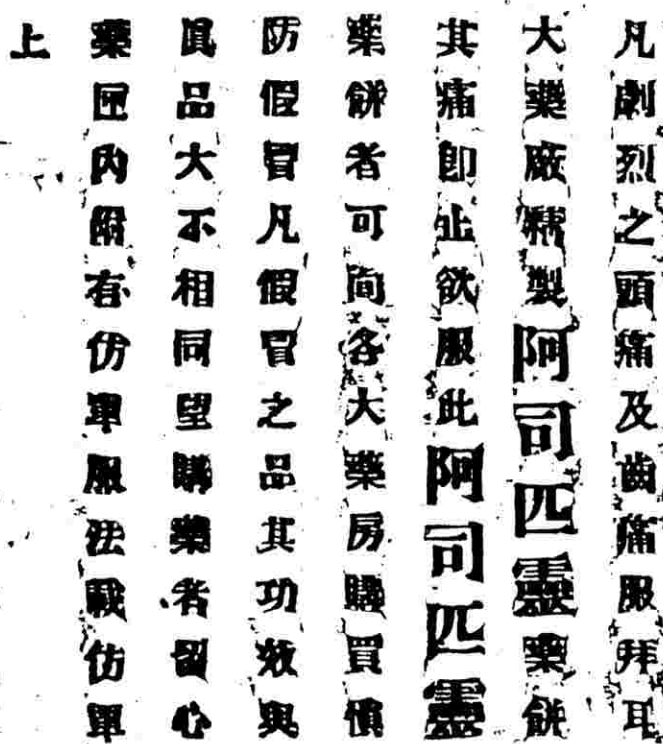 凡劇烈之頭痛及齒痛服拜耳
大藥廠精製阿司匹靈藥餅
其痛卽止欲服此阿司匹靈
藥餅者可向各大藥房購買慎
防假冒凡假冒之品其功效與
眞品大不相同望購藥者留心
藥匣內附有仿單服法載仿單
上